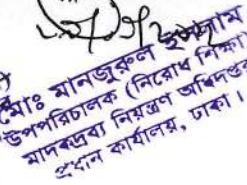 মোঃ মানজুরুল ইসলাম
উপপরিচালক (নিরোধ শিক্ষা)
মাদকদ্রব্য নিয়ন্ত্রণ অধিদপ্তর
প্রধান কার্যালয়, ঢাকা।